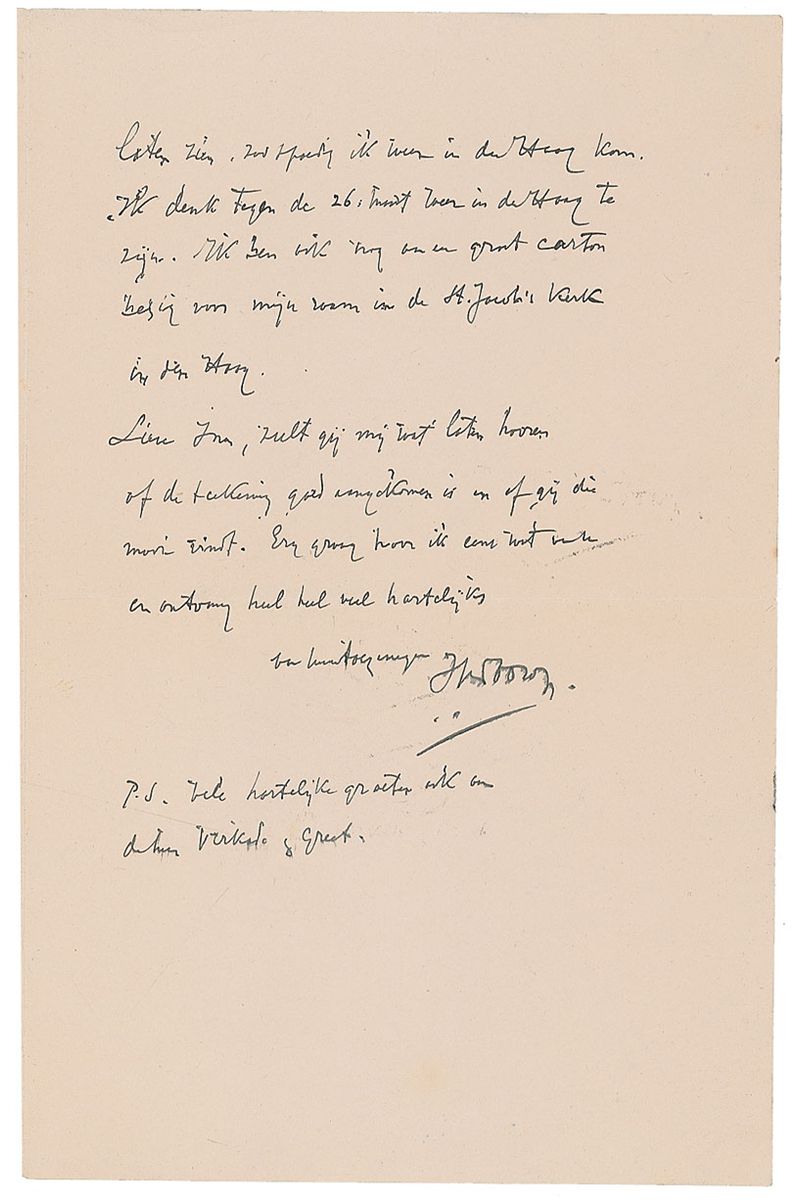 laten zien, zoo spoedig ik weer in den Haag kom.
Ik denk tegen de 26: Maart weer in de Haag te
zijn. Ik ben ook nog aan een groot carton
bezig voor mijn raam in de St. Jacob's Kerk
in den Haag.
Lieve, zult gij mij wat laten hooren
of de teekening goed aangekomen is en of gij die
mooi vindt. Erg graag hoor ik eens wat
en ontvang heel heel veel hartelijks
van
P.S. Vele hartelijke groeten ook aan
den heer Verkade & Greet.